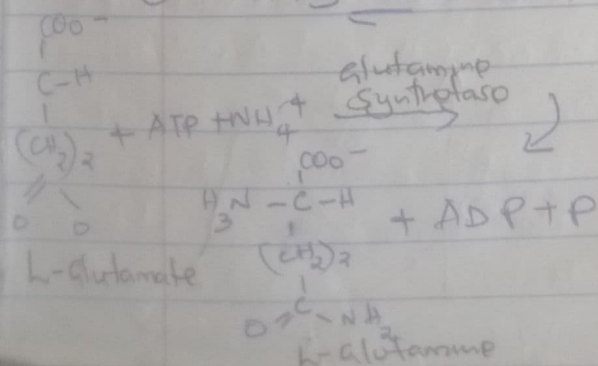 COO-
C-H
(CH2)2 + ATP + NH4+ Glutamine Synthetase
O O
L-Glutamate
COO-
H3N - C - H + ADP + P
(CH2)2
C
O NH2
L-Glutamine